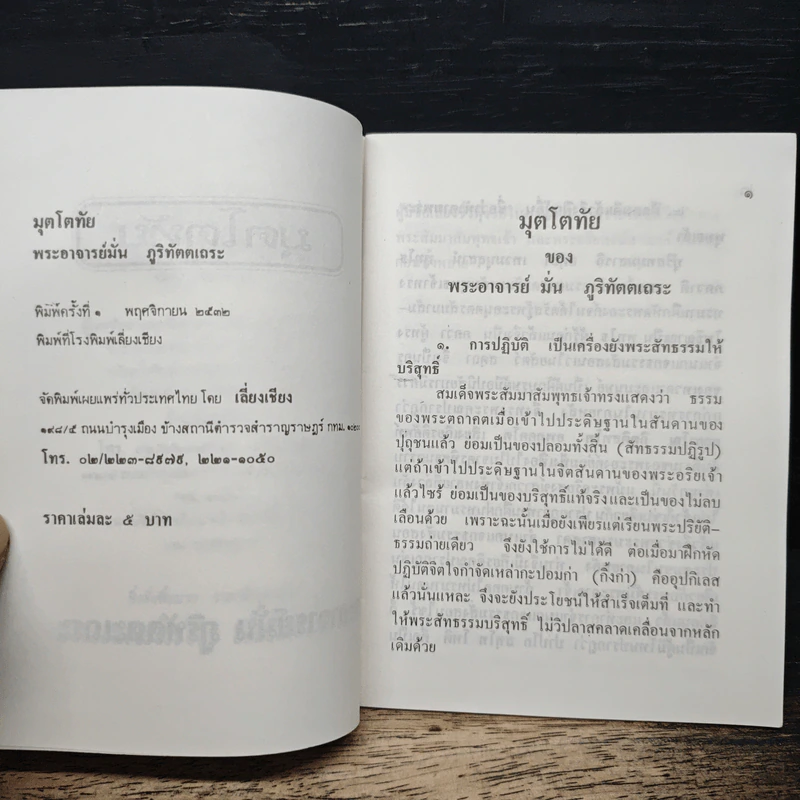 มุตโตทัย
พระอาจารย์มั่น ภูริทัตตเถระ
พิมพ์ครั้งที่ ๑ พฤศจิกายน ๒๕๓๒
พิมพ์ที่โรงพิมพ์เลี่ยงเชียง
จัดพิมพ์เผยแพร่ทั่วประเทศไทย โดย เลี่ยงเชียง
๑๙๘/๕ ถนนบำรุงเมือง ข้างสถานีตำรวจสำราญราษฎร์ กทม.
โทร. ๐๒/๒๒๓-๘๙๗๙, ๒๒๑-๑๐๕๐
ราคาเล่มละ ๕ บาท
๑
มุตโตทัย
ของ
พระอาจารย์ มั่น ภูริทัตตเถระ
๑. การปฏิบัติ เป็นเครื่องยังพระสัทธรรมให้
บริสุทธิ์
สมเด็จพระสัมมาสัมพุทธเจ้าทรงแสดงว่า ธรรม
ของพระตถาคตเมื่อเข้าไปประดิษฐานในสันดานของ
ปุถุชนแล้ว ย่อมเป็นของปลอมทั้งสิ้น (สัทธรรมปฏิรูป)
แต่ถ้าเข้าไปประดิษฐานในจิตสันดานของพระอริยเจ้า
แล้วไซร้ ย่อมเป็นของบริสุทธิ์แท้จริงและเป็นของไม่ลบ
เลือนด้วย เพราะฉะนั้นเมื่อยังเพียรแต่เรียนพระปริยัติ-
ธรรมถ่ายเดียว จึงยังใช้การไม่ได้ดี ต่อเมื่อมาฝึกหัด
ปฏิบัติจิตใจกำจัดเหล่ากะปอมก่า (กิ้งก่า) คืออุปกิเลส
แล้วนั่นแหละ จึงจะยังประโยชน์ให้สำเร็จเต็มที่ และทำ
ให้พระสัทธรรมบริสุทธิ์ ไม่วิปลาสคลาดเคลื่อนจากหลัก
เดิมด้วย